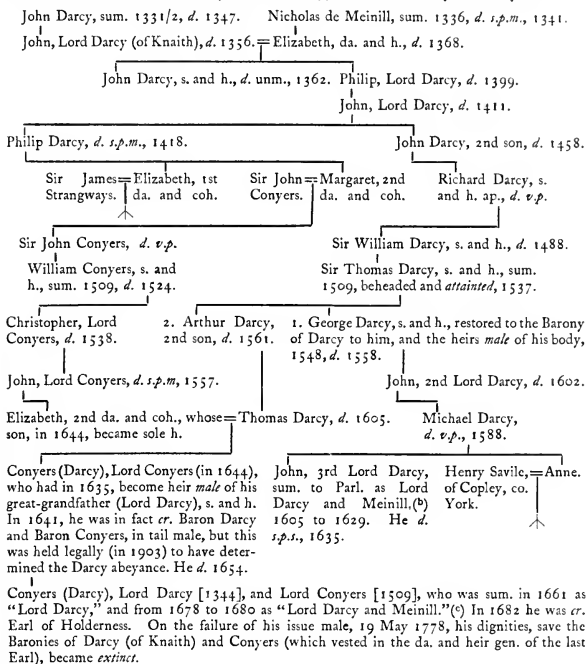 John Darcy, sum. 1331/2, d. 1347.
Nicholas de Meinill, sum. 1336, d. s.p.m., 1341.
John, Lord Darcy (of Knaith), d. 1356.=Elizabeth, da. and h., d. 1368.
John Darcy, s. and h., d. unm., 1362.
Philip, Lord Darcy, d. 1399.
John, Lord Darcy, d. 1411.
Philip Darcy, d. s.p.m., 1418.
John Darcy, 2nd son, d. 1458.
Sir James=Elizabeth, 1st
Strangways. da. and coh.
Sir John=Margaret, 2nd
Conyers. da. and coh.
Richard Darcy, s.
and h. ap., d. v.p.
Sir John Conyers, d. v.p.
Sir William Darcy, s. and h., d. 1488.
William Conyers, s. and
h., sum. 1509, d. 1524.
Sir Thomas Darcy, s. and h., sum.
1509, beheaded and attainted, 1537.
Christopher, Lord
Conyers, d. 1538.
2. Arthur Darcy,
2nd son, d. 1561.
1. George Darcy, s. and h., restored to the Barony
of Darcy to him, and the heirs male of his body,
1548, d. 1558.
John, Lord Conyers, d. s.p.m, 1557.
John, 2nd Lord Darcy, d. 1602.
Elizabeth, 2nd da. and coh., whose=Thomas Darcy, d. 1605.
son, in 1644, became sole h.
Michael Darcy,
d. v.p., 1588.
Conyers (Darcy), Lord Conyers (in 1644),
who had in 1635, become heir male of his
great-grandfather (Lord Darcy), s. and h.
In 1641, he was in fact cr. Baron Darcy
and Baron Conyers, in tail male, but this
was held legally (in 1903) to have deter-
mined the Darcy abeyance. He d. 1654.
John, 3rd Lord Darcy,
sum. to Parl. as Lord
Darcy and Meinill,(b)
1605 to 1629. He d.
s.p.s., 1635.
Henry Savile,=Anne.
of Copley, co.
York.
Conyers (Darcy), Lord Darcy [1344], and Lord Conyers [1509], who was sum. in 1661 as
"Lord Darcy," and from 1678 to 1680 as "Lord Darcy and Meinill."(c) In 1682 he was cr.
Earl of Holderness. On the failure of his issue male, 19 May 1778, his dignities, save the
Baronies of Darcy (of Knaith) and Conyers (which vested in the da. and heir gen. of the last
Earl), became extinct.